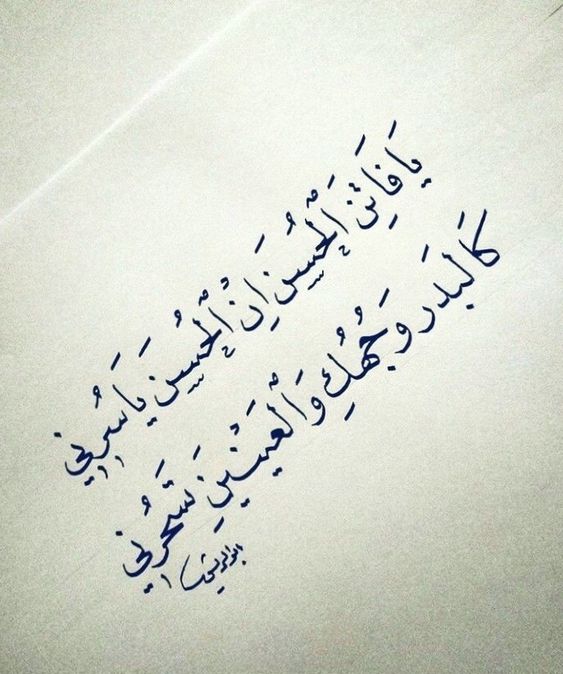 يَا فَاتِنَ الْحُسْنِ اِنَّ الْحُسْنَ يَاسُرُنِي
كَالبَدرِ وَجْهُكِ وَالْعَيْنَيْنِ تَسْحَرُنِي